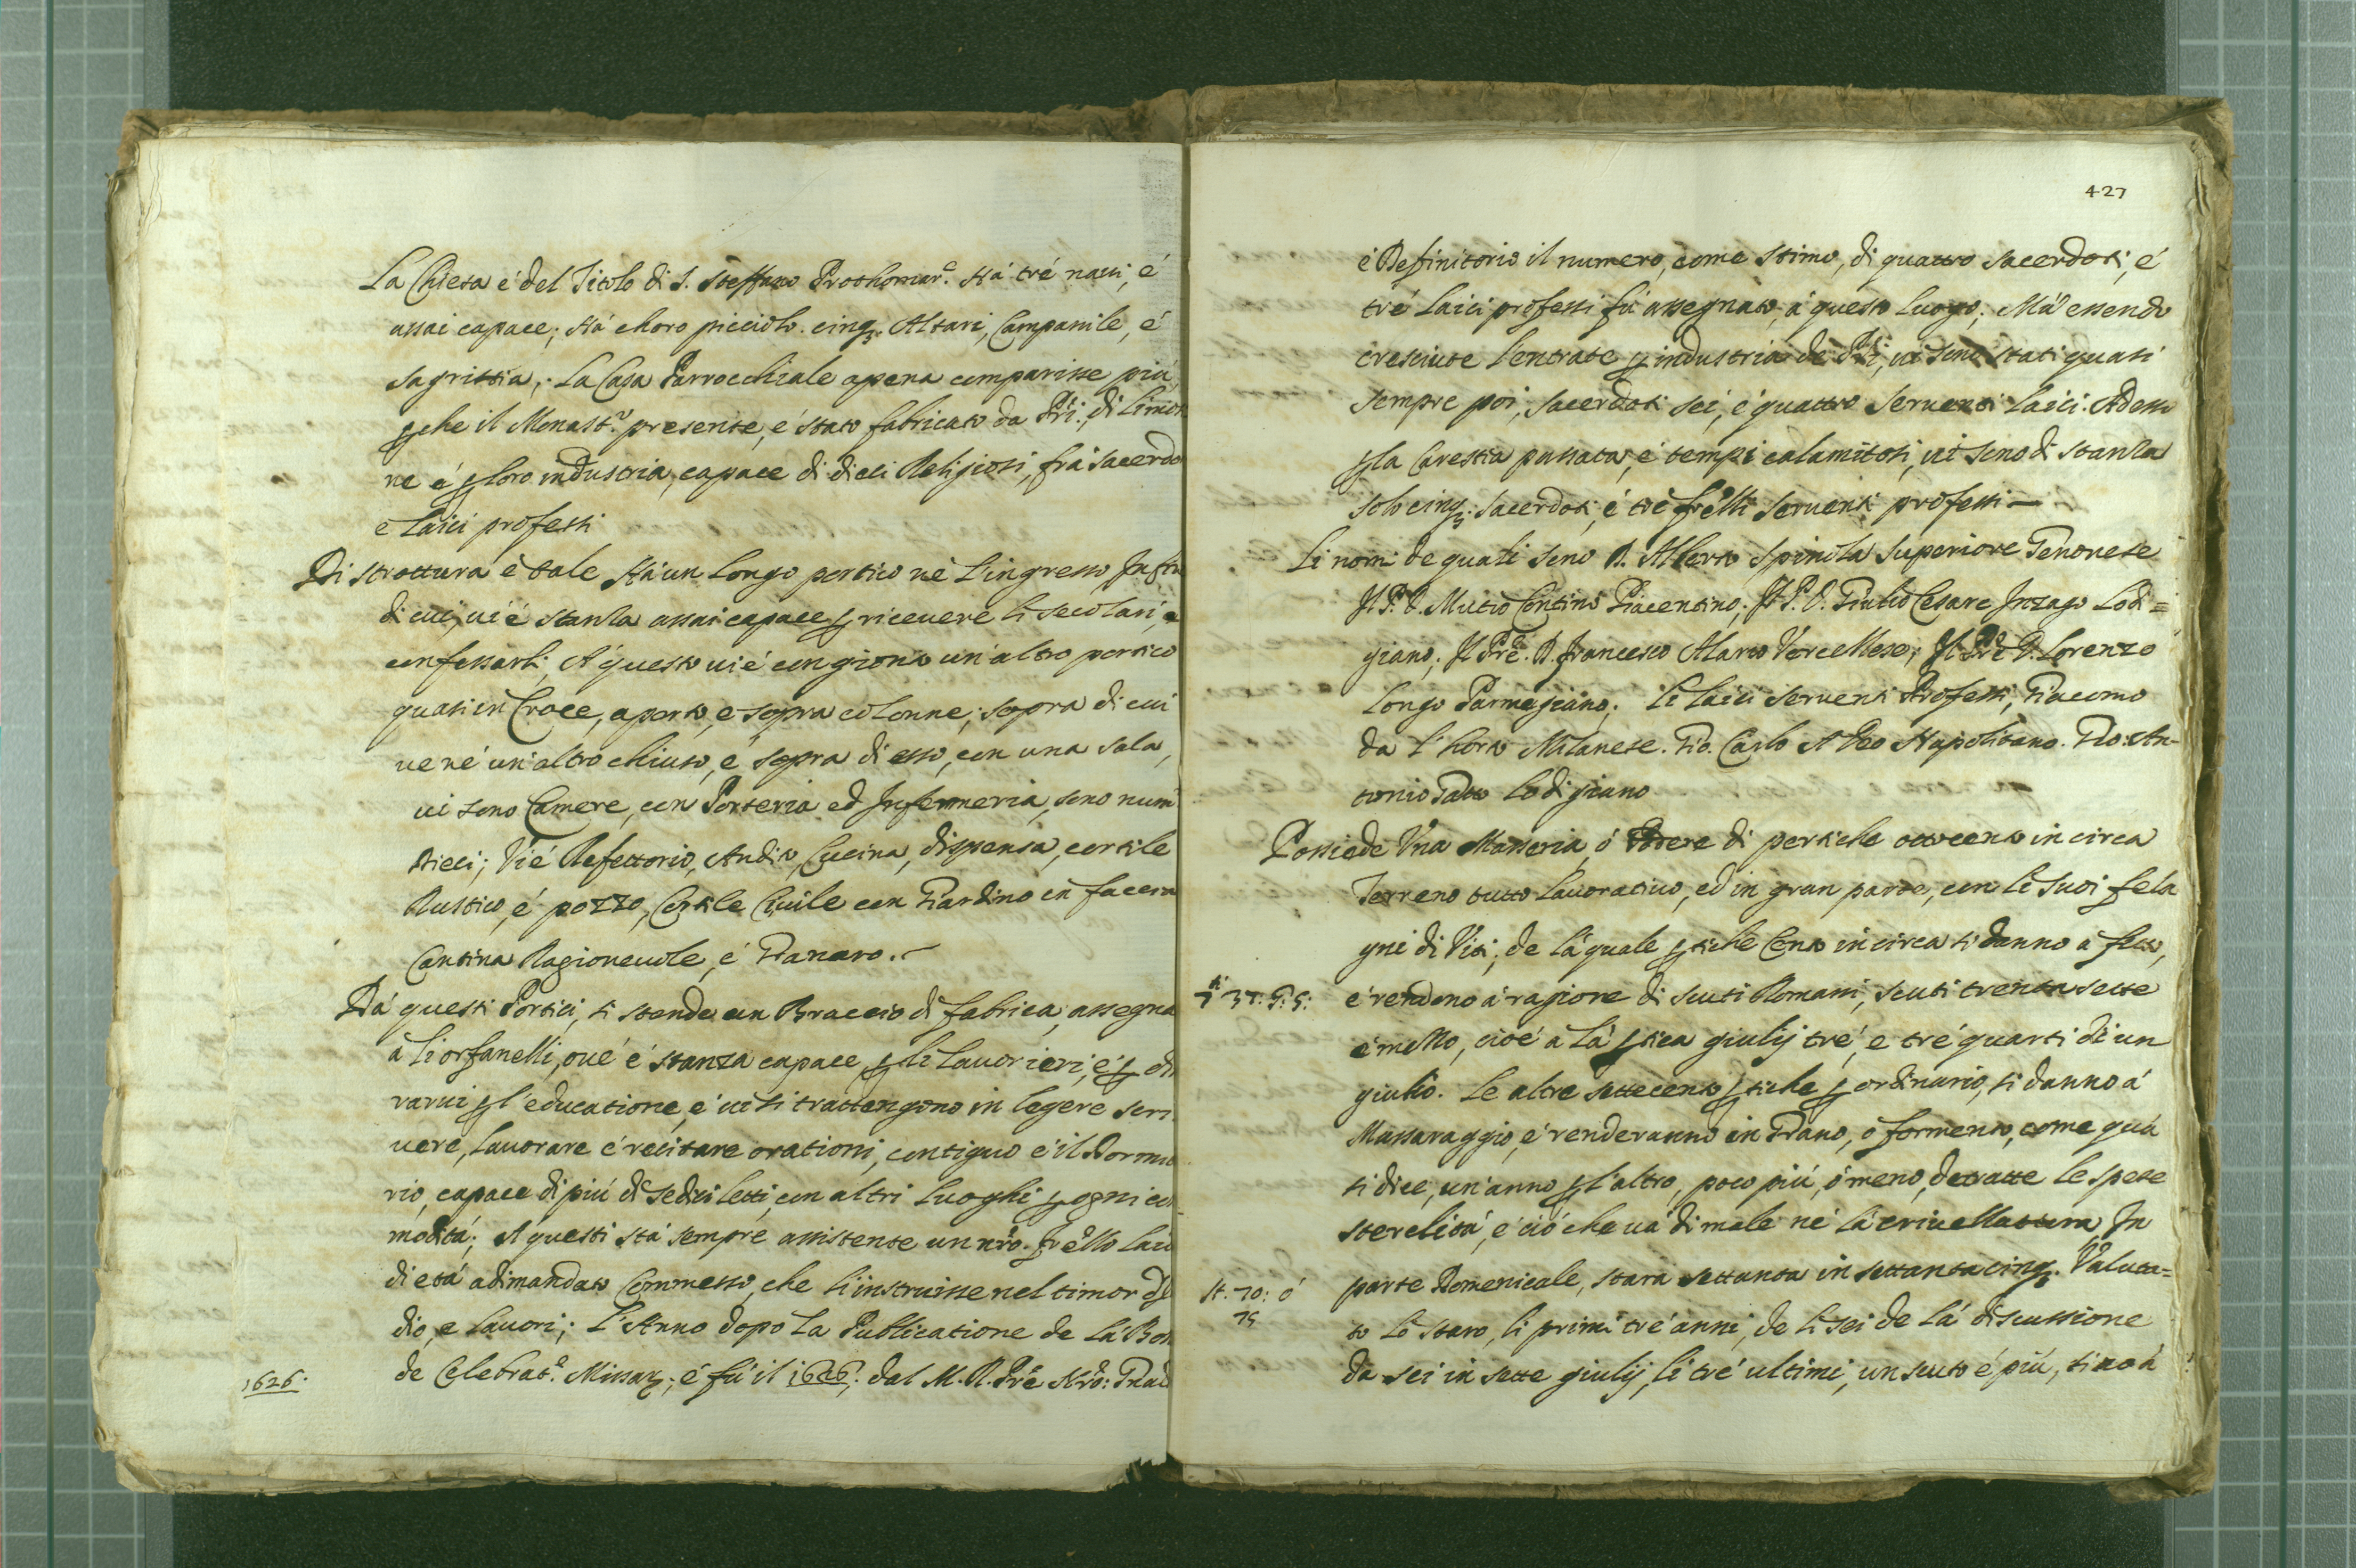 La Chiesa é del Titolo di S. Steffano Prothomar.e Há tré navi, é
assai capace; Há choro picciolo. cinq; Altari, Campanile, é
sagristia; La Casa Parrocchiale apena comparisse piú
che il Monast.o presente, é stato fabricato da PP.ri, di
ne é loro industria, capace di dieci Religiosi, frá Sacerdo
e laici professi
Di strottura é tale Há un longo portico né l'ingresso
di cui, vi é stanza assai capace ricevere li secolari, e
confessarli, A' questo vi é congionto un'altro portico
quasi in Croce, aperto, e sopra colonne; sopra di cui
ve né un'altro chiuso, é sopra di esso, con una sala,
vi sono Camere, con Porteria ed Infermeria, sono num
dieci; Vi é Refettorio, Andito, Cucina, dispensa, cortile
Rustico, é pozzo, Cortile Civile con Giardino in faccia
Cantina Ragionevole, é Granaro.
Dá questi Portici, si stende un Braccio di fabrica, assegna
á li orfanelli, ove é stanza capace, li lavorieri, é
rarvi l'educatione, é vi si trattengono in legere scri
vere, lavorare é recitare orationi, contiguo é il Dormi
rio, capace di piú di sedici letti, con altri luoghi ogni co
moditá; A' questi stá sempre assistente un nro. fr'ello laico
di etá adimandato Commesso, che li instruisse nel timor di
dio, e lavori; L'Anno dopo la Publicatione de la Bolla
de Celebrat.e Missar; é fú il 1626; dal M. R. Pre
1626.
427
é Definitorio il numero, come stimo, di quattro sacerdoti, é
tré laici professi fú assegnato, á questo luogo; Má essendo
cresciute l'entrate industria de PPri, vi sono stati quasi
sempre poi, sacerdoti sei, é quattro serventi laici. Adesso
la Carestia passata, é tempi calamitosi, vi sono di stanza
solo cinq; sacerdoti, é tré fr'elli serventi professi —
Li nomi de quali sono D. Alberto Spinola Superiore Genovese
Il P. D. Mutio Centino Piacentino; Il P. D. Giulio Cesare Inzago Lodi=
giano; Il Pre. D. Francesco Marco Vercellese; Il Pre D. Lorenzo
Longo Parmegiano; Li laici serventi Professi, Giacomo
da l'hora Milanese. Gio. Carlo Napolitano. Gio. An-
tonio Gatto Lodigiano
Possiede Una Masseria, ó Podere di pertiche ottocento in circa
Terreno tutto lavorativo, ed in gran parte, con li suoi fila
gni di Viti; de la quale tiche Cento in circa si danno á fitto,
37: 5: 5:
é rendono á ragione di scuti Romani, scuti trentasette
é mezzo, cioé á lá tica giulij tré, e tré quarti di un
giulio. Le altre settecento tiche ordinario, si danno á
Massaraggio, é renderanno in Grano, o formento, come quá
si dice, un'anno l'altro, poco piú, ó meno, detratte le spese
sterelitá, é ció che vá di male né lá crivellattura In
st. 70: ó
75
parte Domenicale, stara settanta in settantacinq; Valuta=
to lo staro, li primi tré anni, de li sei de lá discussione
da sei in sette giulij, li tré ultimi, un scuto é piú, sino á